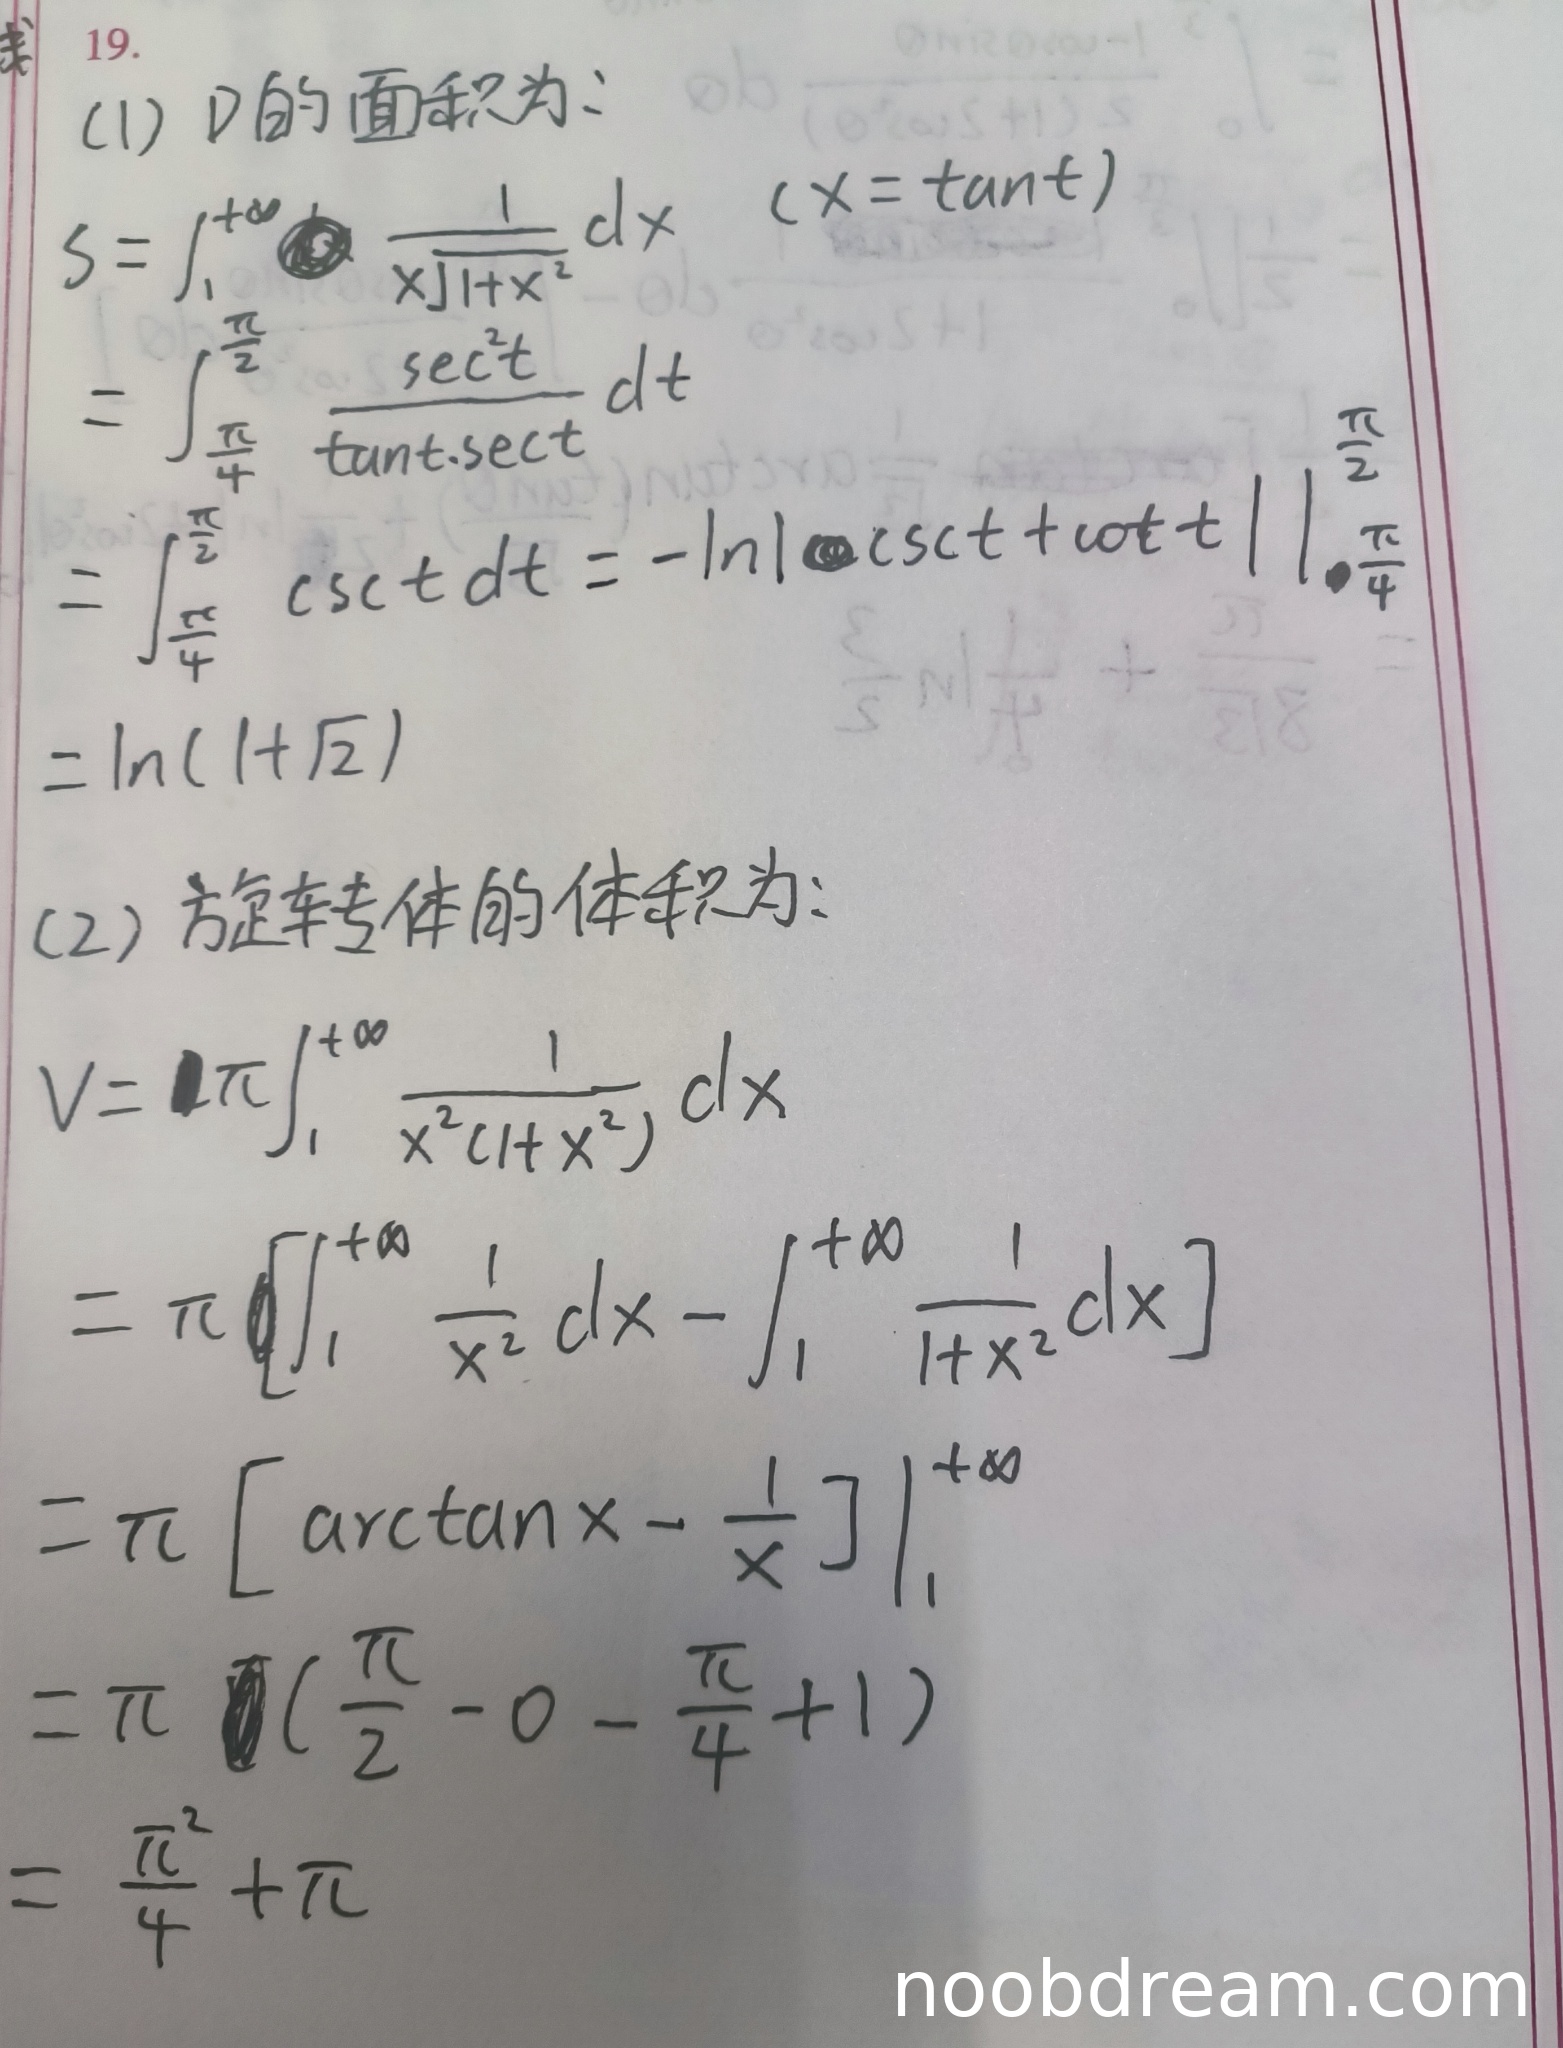 19.
(1) D的面积为:
S = ∫₁^{+∞} 1/(x√(1+x²)) dx (x = tant)
= ∫_{π/4}^{π/2} sec²t/(tant·sect) dt
= ∫_{π/4}^{π/2} csct dt = -ln|csct + cot t| |_{π/4}^{π/2}
= ln(1+√2)
(2) 旋转体的体积为:
V = π∫₁^{+∞} 1/(x²(1+x²)) dx
= π[∫₁^{+∞} 1/x² dx - ∫₁^{+∞} 1/(1+x²) dx]
= π[arctanx - 1/x]|₁^{+∞}
= π(π/2 - 0 - π/4 + 1)
= π²/4 + π
noobdream.com